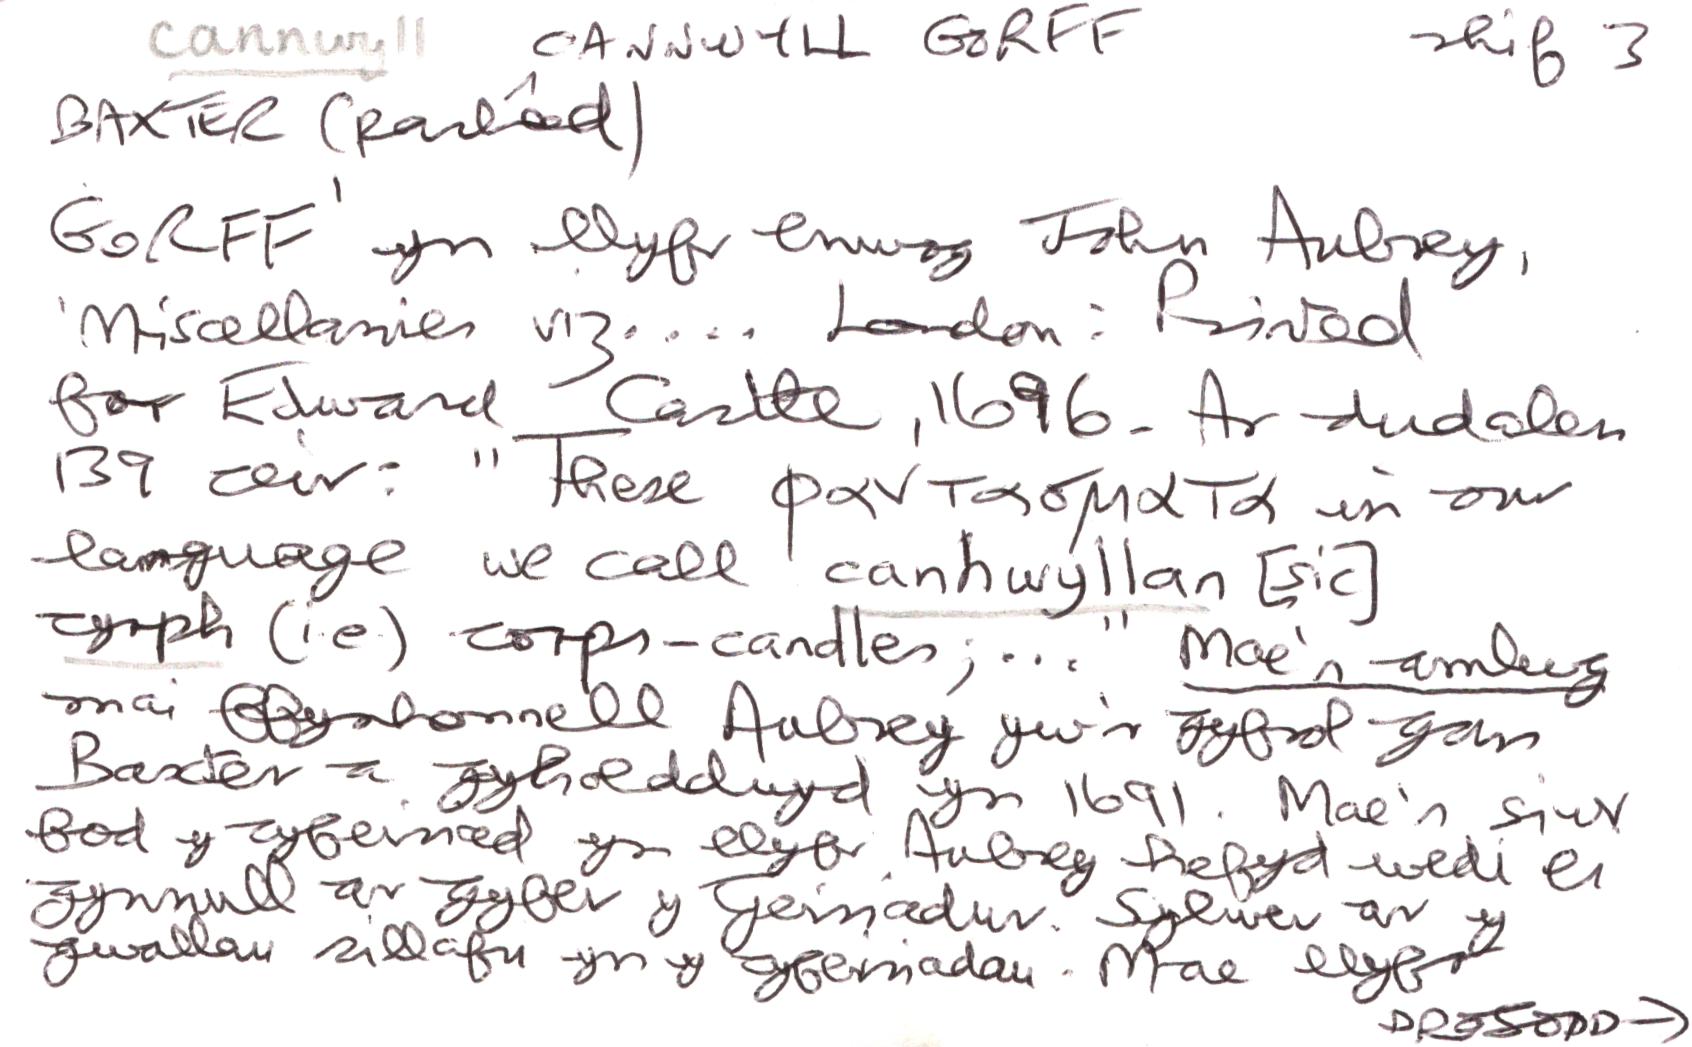 cannwyll CANNWYLL GORFF rhif 3
BAXTER (parhâd)
GORFF' yn llyfr enwog John Aubrey,
'Miscellanies viz.... London: Printed
for Edward Castle, 1696. Ar dudalen
139 ceir: "These φαντασματα in our
language we call canhwyllan [sic]
cyrph (i.e) corps-candles;..." Mae'n amlwg
mai ffynhonnell Aubrey yw'r gyfrol gan
Baxter a gyhoeddwyd yn 1691. Mae'n siwr
fod y cyfeiriad yn llyfr Aubrey hefyd wedi ei
gynnull ar gyfer y Geiriadur. Sylwer ar y
gwallau sillafu yn y cyfeiriadau. Mae llyfr
DROSODD→